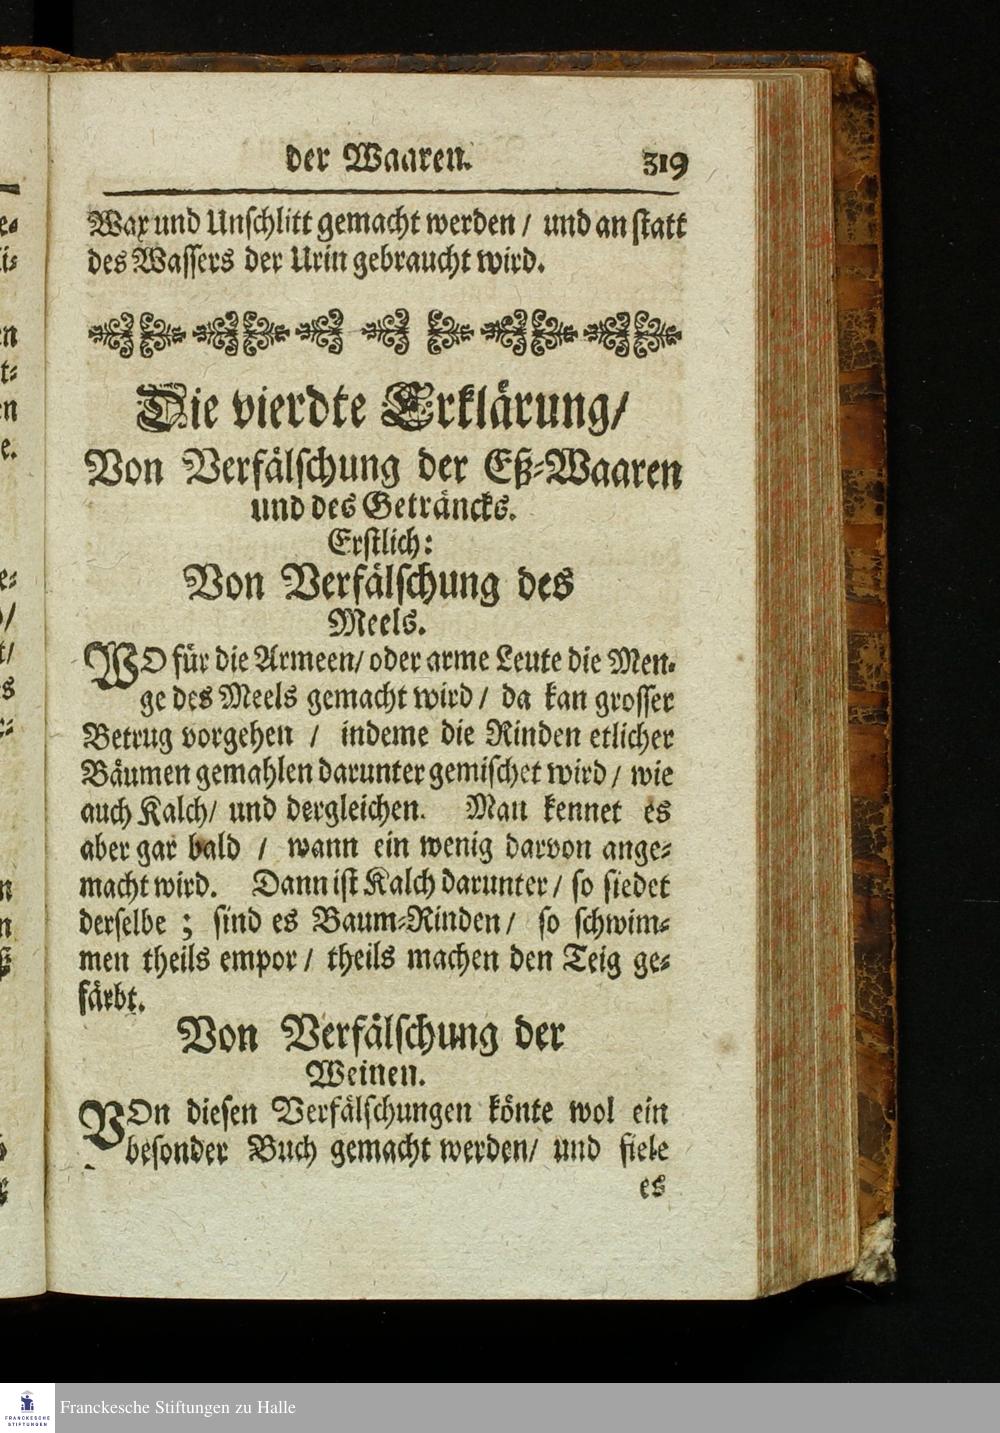 der Waaren. 319
Wax und Unschlitt gemacht werden / und an statt
des Wassers der Urin gebraucht wird.
Die vierdte Erklärung/
Von Verfälschung der Eß-Waaren
und des Geträncks.
Erstlich:
Von Verfälschung des
Meels.
WO für die Armeen/ oder arme Leute die Men-
ge des Meels gemacht wird / da kan grosser
Betrug vorgehen / indeme die Rinden etlicher
Bäumen gemahlen darunter gemischet wird / wie
auch Kalch/ und dergleichen. Man kennet es
aber gar bald / wann ein wenig darvon ange-
macht wird. Dann ist Kalch darunter / so siedet
derselbe ; sind es Baum-Rinden / so schwim-
men theils empor / theils machen den Teig ge-
färbt.
Von Verfälschung der
Weinen.
VOn diesen Verfälschungen könte wol ein
besonder Buch gemacht werden/ und fiele
es
FRANCKESCHE
STIFTUNGEN
Franckesche Stiftungen zu Halle